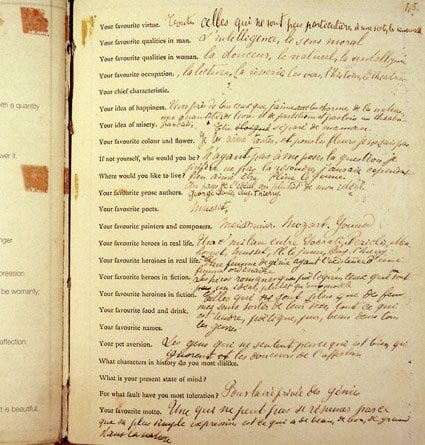 145.
Your favourite virtue. Toutes celles qui ne sont pas particulières à une secte, les universelles
Your favourite qualities in man. L'intelligence, le sens moral
Your favourite qualities in woman. La douceur, le naturel, l'intelligence
Your favourite occupation. La lecture, la rêverie, les vers, l'histoire, le théâtre
Your chief characteristic.
Your idea of happiness. Vivre près de tous ceux que j'aime avec les charmes de la nature,
une quantité de livres et de partitions, et pas loin un théâtre
français
Your idea of misery. Être séparé de maman.
Your favourite colour and flower. Je les aime toutes, et pour les fleurs, je ne sais pas
If not yourself, who would you be? N'ayant pas à me poser la question, je
préfère ne pas la résoudre. J'aurais cependant
bien aimé être Pline le Jeune.
Where would you like to live? Au pays de l'idéal, ou plutôt de mon idéal.
Your favourite prose authors. George Sand, Aug. Thierry.
Your favourite poets. Musset.
Your favourite painters and composers. Meissonier. Mozart. Gounod
Your favourite heroes in real life. Un milieu entre Socrate, Périclès, Mahomet,
Musset, Pline le Jeune, Aug. Thierry
Your favourite heroines in real life. Une femme de génie ayant l'existence d'une
femme ordinaire
Your favourite heroes in fiction. Les héros romanesques poétiques, ceux qui sont
un idéal plutôt qu'un modèle
Your favourite heroines in fiction. Celles qui sont plus que des femmes
sans sortir de leur sexe, tout ce qui
Your favourite food and drink. est tendre, poétique, pur, beau dans tous
les genres
Your favourite names.
Your pet aversion. Les gens qui ne sentent pas ce qui est bien, qui
ignorent les douceurs de l'affection
What characters in history do you most dislike.
What is your present state of mind?
For what fault have you most toleration? Pour la vie privée des génies
Your favourite motto. Une qui ne peut pas se résumer parce
que sa plus simple expression est ce qui a de beau, de bon, de grand
dans la nature
with a quantity
wer it.
nger
pression
be womanly;
affection.
t is beautiful.